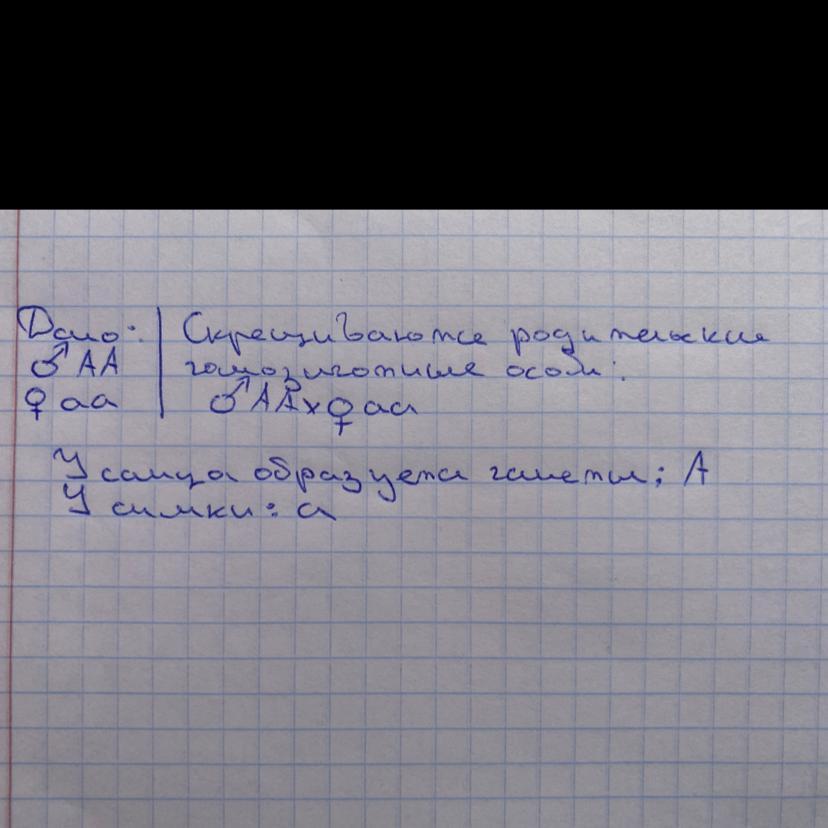 Дано: | Скрещиваются родительские
♂ АА | гомозиготные особи:
♀ аа | ♂ АА х ♀ аа
У самца образуется гаметы: А
У самки: а